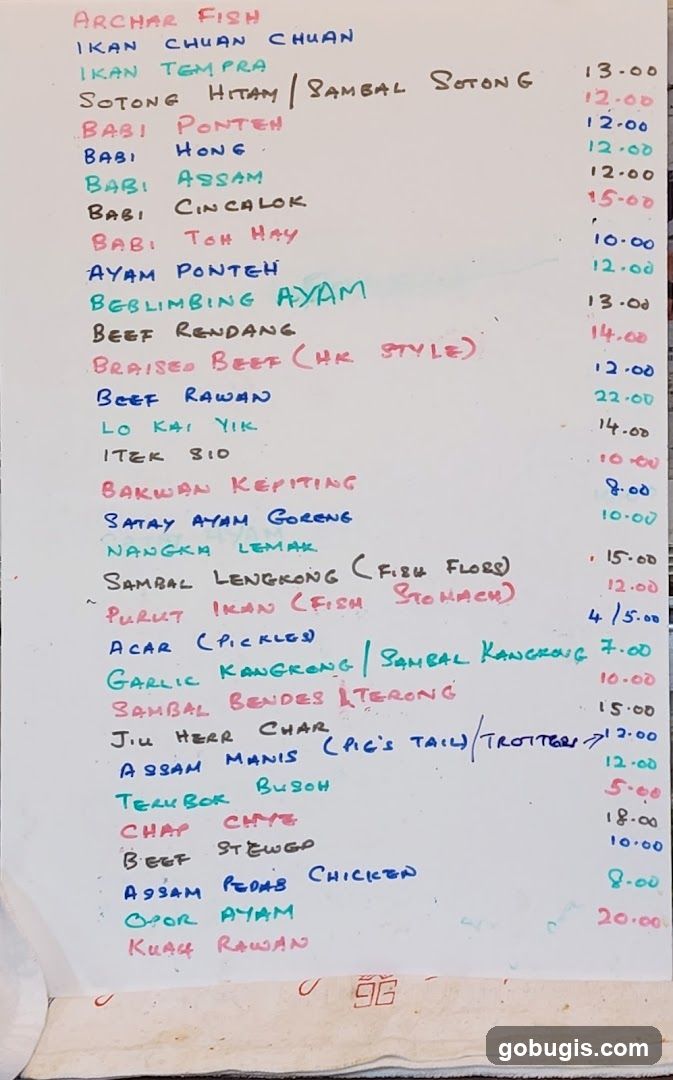 ARCHAR FISH
IKAN CHUAN CHUAN
IKAN TEMPRA
SOTONG HITAM / SAMBAL SOTONG 13.00
BABI PONTEH 12.00
BABI HONG 12.00
BABI ASSAM 12.00
BABI CINCALOK 12.00
BABI TOH HAY 15.00
AYAM PONTEH 10.00
BEBLIMBING AYAM 12.00
BEEF RENDANG 13.00
BRAISED BEEF (HK STYLE) 14.00
BEEF RAWAN 12.00
LO KAI YIK 22.00
ITEK SIO 14.00
BAKWAN KEPITING 10.00
SATAY AYAM GORENG 8.00
NANGKA LEMAK 10.00
SAMBAL LENGKONG (FISH FLOSS) 15.00
PURUT IKAN (FISH STOMACH) 12.00
ACAR (PICKLES) 4/5.00
GARLIC KANGKONG / SAMBAL KANGKONG 7.00
SAMBAL BENDES & TERONG 10.00
JIU HERR CHAR 15.00
ASSAM MANIS (PIG'S TAIL) / TROTTERS → 12.00
TERUBOK BUSOH 12.00
CHAP CHYE 5.00
BEEF STEWED 18.00
ASSAM PEDAS CHICKEN 10.00
OPOR AYAM 8.00
KUAH RAWAN 20.00
gobugis.com